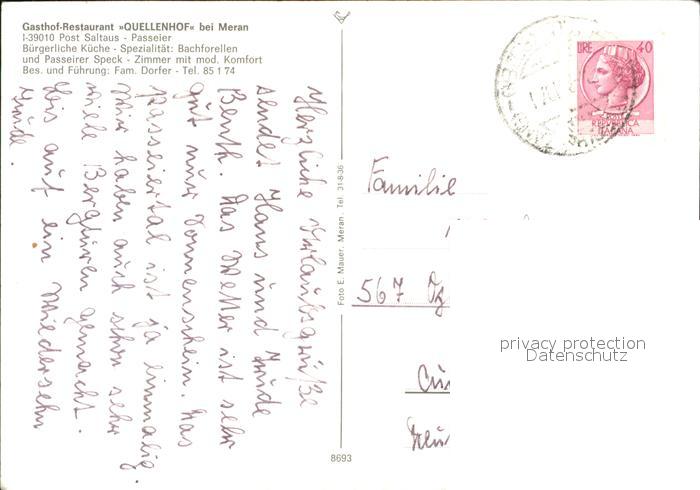 Gasthof-Restaurant »QUELLENHOF« bei Meran
I-39010 Post Saltaus - Passeier
Bürgerliche Küche - Spezialität: Bachforellen
und Passeirer Speck - Zimmer mit mod. Komfort
Bes. und Führung: Fam. Dorfer - Tel. 85 1 74
Herzliche Urlaubsgrüße
sendet Hans und
Das Wetter ist sehr
gut nur Sonnenschein. Das
Passeiertal ist ja einmalig.
Wir haben auch schon sehr
viele Bergturen gemacht.
Bis auf ein Wiedersehn
Foto E. Mauer, Meran, Tel. 31-8-36
8693
LIRE 40
POSTE
REPVBBLICA
ITALIANA
Familie
567
privacy protection
Datenschutz